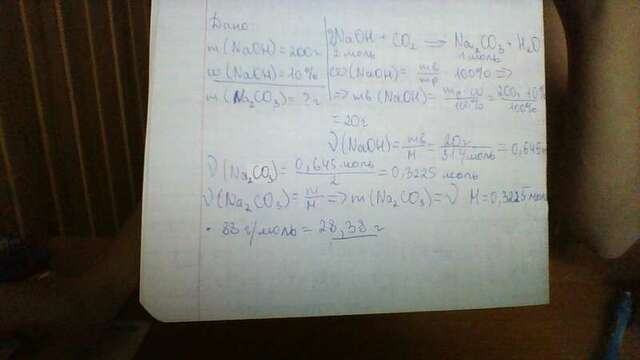 Дано:
m(NaOH)=200г
ω(NaOH)=10%
m(Na₂CO₃)=?г
2NaOH + CO₂ ⟹ Na₂CO₃ + H₂O
2 моль 1 моль
ω(NaOH)= mв/mр 100% ⟹
⟹ mв(NaOH)= mр·ω/100% = 200г·10%/100%
=20г
ν(NaOH)= mв/M = 20г/31г/моль = 0,645
ν(Na₂CO₃)= 0,645 моль/2 = 0,3225 моль
ν(Na₂CO₃)= m/M ⟹ m(Na₂CO₃)=ν M=0,3225 моль
· 88 г/моль = 28,38 г